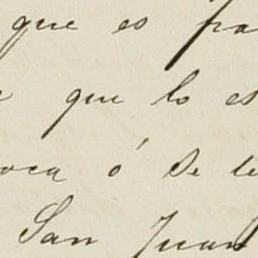 que es
que lo es
oca ó se te
San Juan